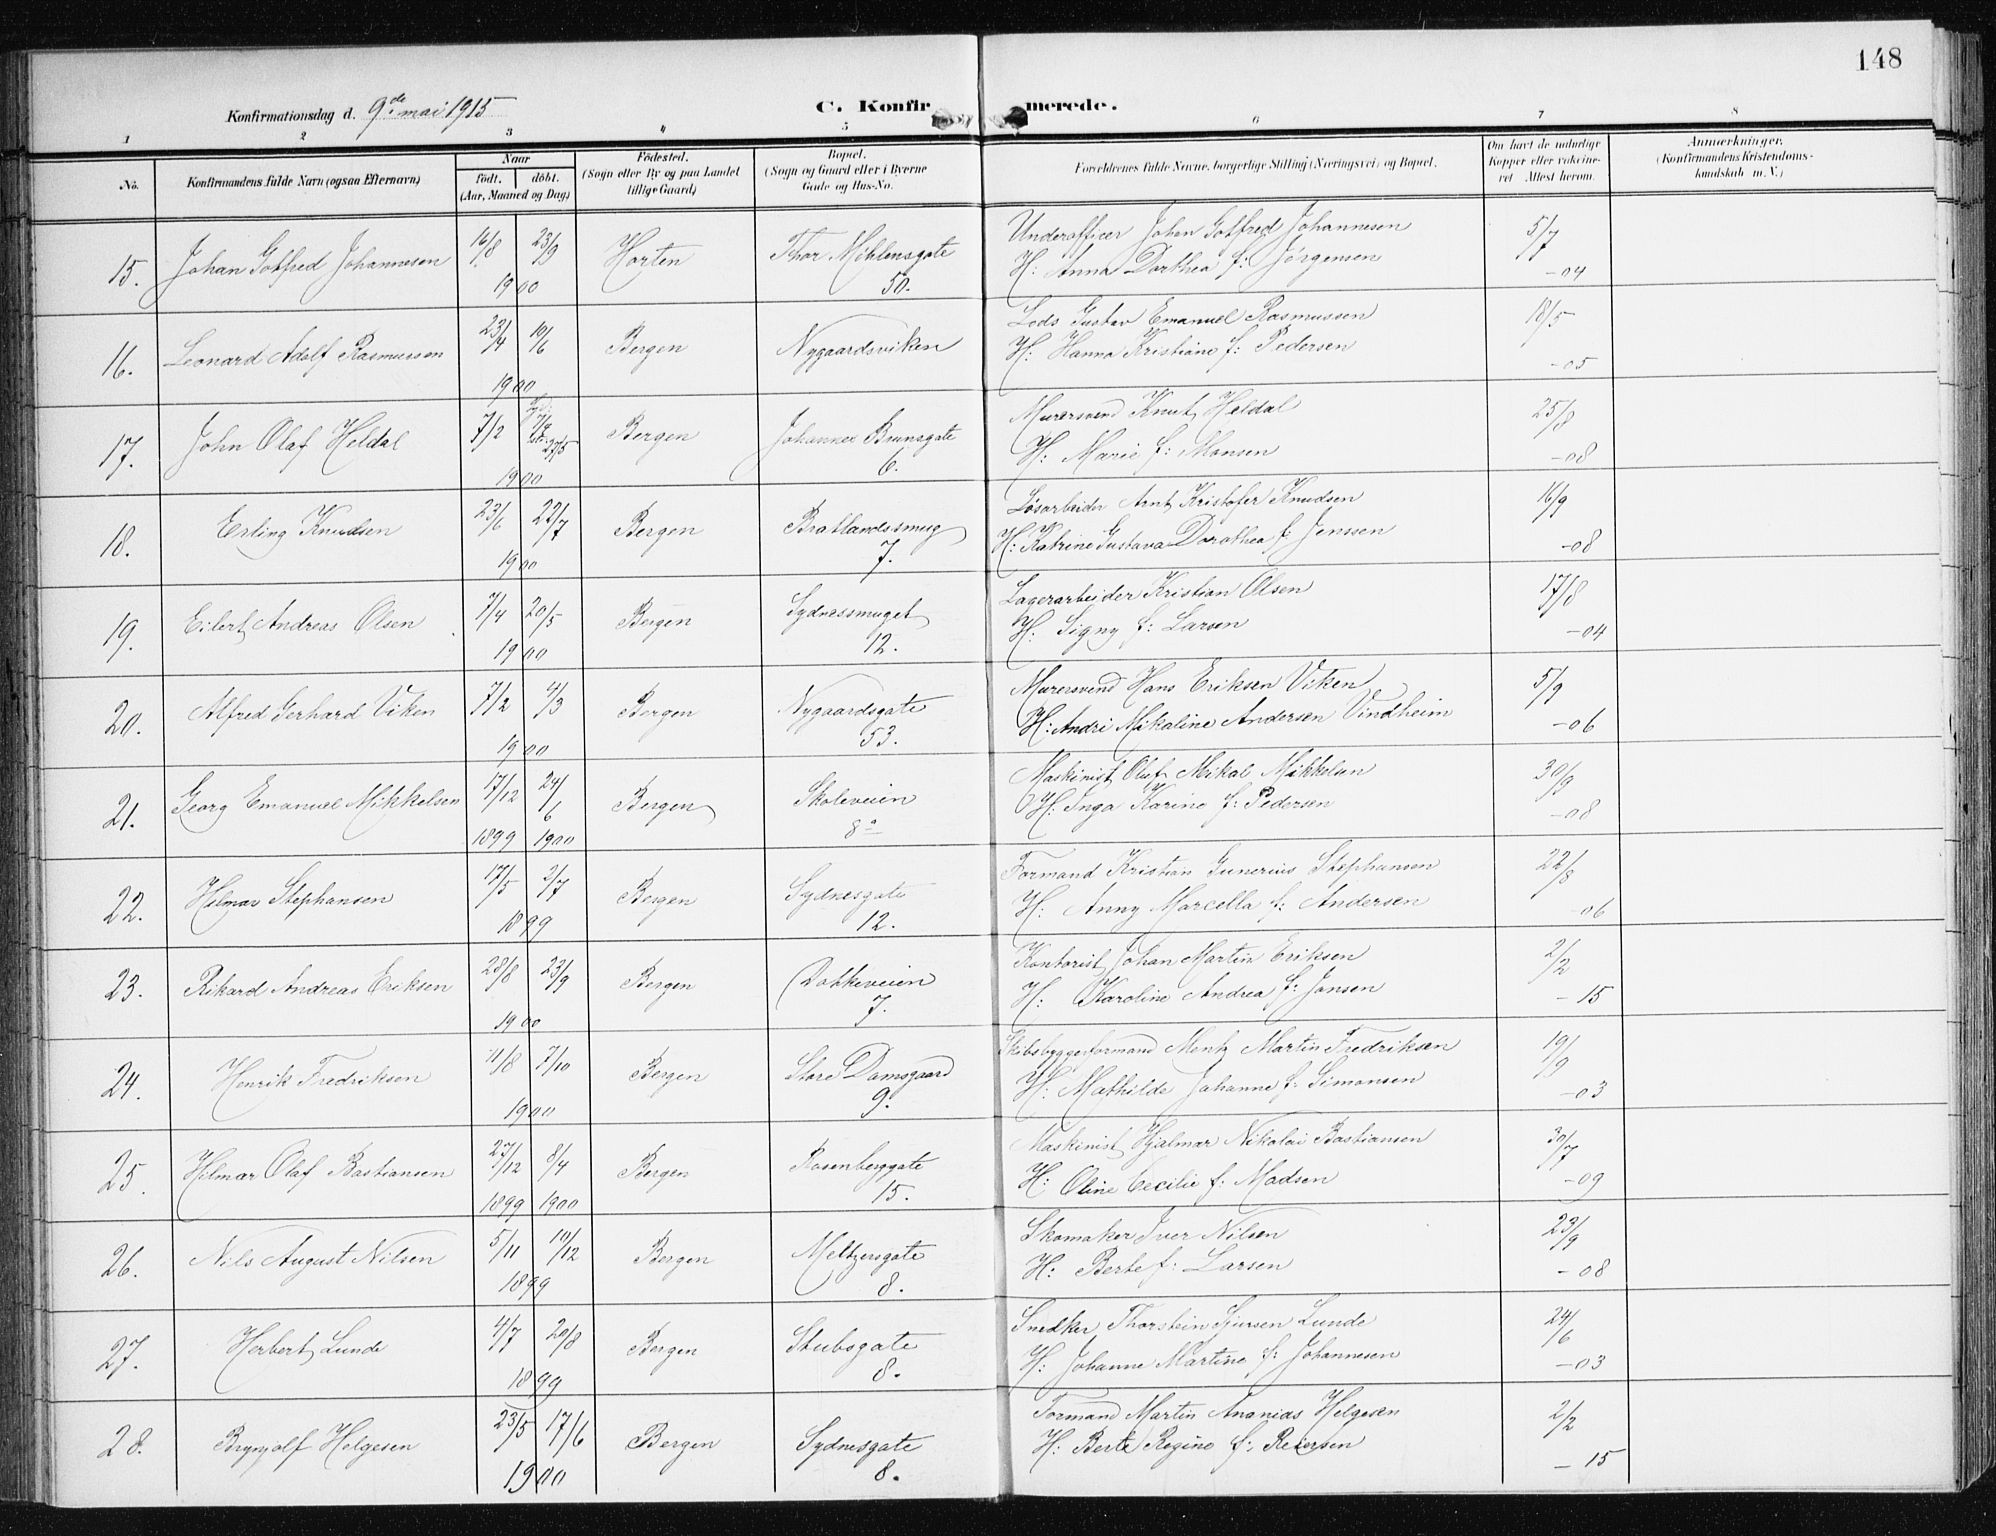 148
Konfirmationsdag d. 9de mai 1915
C. Konfirmerede.
1 2 3 4 5 6 7 8
No.
Konfirmandens fulde Navn (ogsaa Efternavn)
Naar
födt. döbt.
(Aar, Maaned og Dag)
Födested.
(Sogn eller By og paa Landet
tillige Gaard)
Bopæl.
(Sogn og Gaard eller i Byerne
Gade og Hus-No.
Forældrenes fulde Navne, borgerlige Stilling (Næringsvei) og Bopæl.
Om havt de naturlige
Kopper eller vakcine-
ret Attest herom.
Anmærkninger.
(Konfirmandens Kristendoms-
kundskab m. V.)
15. Johan Gotfred Johannesen 16/8 23/9 1900 Horten Thor Möhlensgate 50.
Underofficer Johan Gotfred Johannesen 5/7
H: Anna Dorthea f: Jörgensen -04
16. Leonard Adolf Rasmussen 23/4 10/6 1900 Bergen Nygaardsviken
Lods Gustav Emanuel Rasmussen 18/5
H: Hanna Kristiane f: Pedersen -05
17. John Olaf Heldal 7/2 27/5 1900 Bergen Johannes Brunsgate 6.
Murersvend Knut Heldal 25/8
H: Marie f: Monsen -08
18. Erling Knudsen 23/6 22/7 1900 Bergen Bratlandssmug 7.
Løsarbeider Arnt Kristofer Knudsen 16/9
H: Katrine Gustava Dorothea f: Jenssen -08
19. Eilert Andreas Olsen 7/4 20/5 1900 Bergen Sydnessmuget 12.
Lagerarbeider Kristian Olsen 17/8
H: Signy f: Larsen -04
20. Alfred Gerhard Viken 7/2 4/3 1900 Bergen Nygaardsgate 53.
Murersvend Hans Eriksen Viken 5/9
H: Andri Mikaline Andersen Vindheim -06
21. Georg Emanuel Mikkelsen 17/12 1899 24/6 1900 Bergen Skoleveien 8a
Maskinist Oluf Mikal Mikkelsen 30/9
H: Inga Karine f: Pedersen -08
22. Hilmar Stephansen 17/5 2/7 1899 Bergen Sydnesgate 12.
Formand Kristian Gunerius Stephansen 22/8
H: Anny Marcella f: Andersen -06
23. Rikard Andreas Eriksen 28/8 23/9 1900 Bergen Dokkeveien 7.
Kontorist Johan Martin Eriksen 2/2
H: Karoline Andrea f: Jansen -15
24. Henrik Fredriksen 11/8 7/10 1900 Bergen Store Damsgaard 9.
Skibsbyggerformand Mentz Martin Fredriksen 19/9
H: Mathilde Johanne f: Simonsen -03
25. Hilmar Olaf Bastiansen 27/12 1899 8/4 1900 Bergen Rosenberggate 15.
Maskinist Hjalmar Nikolai Bastiansen 30/7
H: Oline Cecilie f: Madsen -09
26. Nils August Nilsen 5/11 10/12 1899 Bergen Meltzersgate 8.
Skomaker Iver Nilsen 23/9
H: Berte f: Larsen -08
27. Herbert Lunde 4/7 20/8 1899 Bergen Stubsgate 8.
Snedker Thorstein Sjursen Lunde 24/6
H: Johanne Martine f: Johannesen -03
28. Brynjolf Helgesen 23/5 17/6 1900 Bergen Sydnesgate 8.
Formand Martin Ananias Helgesen 2/2
H: Berte Regine f: Reiersen -15